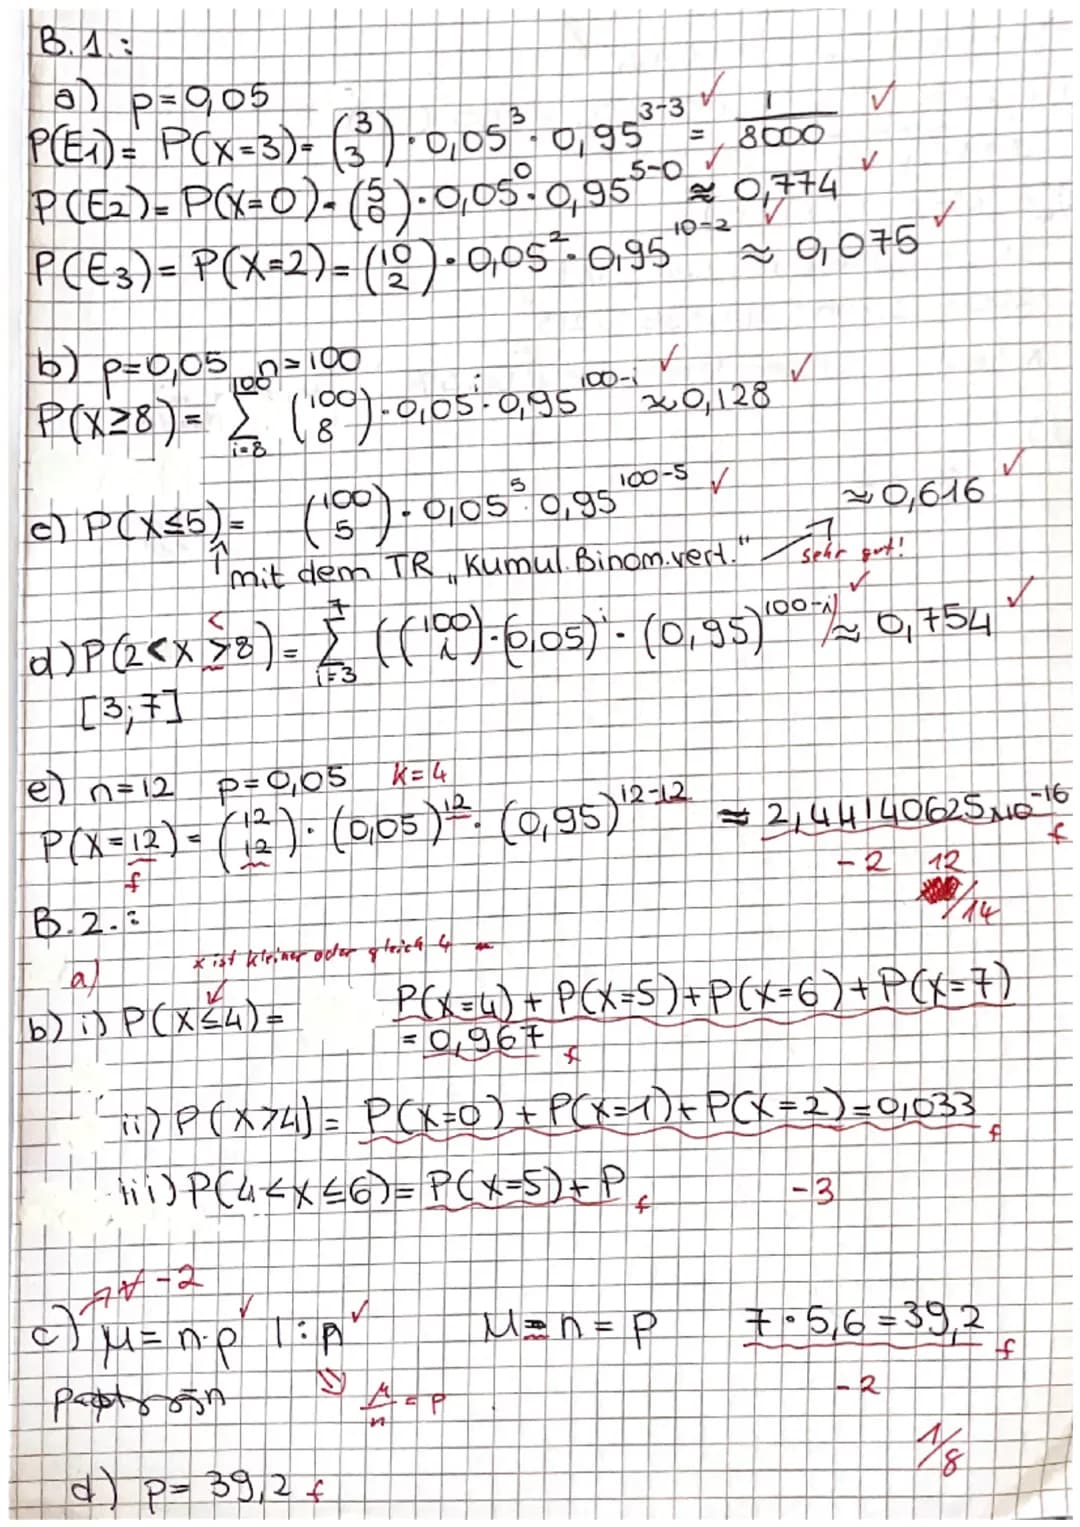 B.1.:
a) p=0,05
P(E1)= P(X=3)= (3 3)·0,05³·0,95^3-3 = 1/8000 ✓ ✓
P(E2)= P(X=0)= (5 0)·0,05⁰·0,95^5-0 ≈ 0,774 ✓ ✓
P(E3)= P(X=2)= (10 2)·0,05²·0,95^10-2 ≈ 0,075 ✓ ✓
b) p=0,05 n=100
P(X≥8)= Σ 100 i=8 (100 8)·0,05^i·0,95^100-i ≈0,128 ✓ ✓
c) P(X≤5)= (100 5)·0,05⁵·0,95^100-5 ✓ ≈0,616 ✓
↑ mit dem TR „Kumul.Binom.vert." ↗ sehr gut!
<
d) P(2<X>8)= Σ 7 i=3 ((100 i)·(0,05)^i·(0,95)^100-i) ≈ 0,754 ✓ ✓
[3;7]
e) n=12 p=0,05 k=4
P(X=12)= (12 12)·(0,05)^12·(0,95)^12-12 ≈ 2,44140625×10^-16 f
f -2 12/14
B.2.:
a) x ist kleiner oder gleich 4
b) i) P(X≤4)= P(X=4)+P(X=5)+P(X=6)+P(X=7)
=0,967 f
ii) P(X>4)= P(X=0)+P(X=1)+P(X=2)=0,033 f
iii) P(4<X≤6)= P(X=5)+P f -3
-2
c) μ=n·p ✓ |:n ✓ M=n=p 7·5,6=39,2 f
⇓ μ/n = p -2
1/8
d) p= 39,2 f